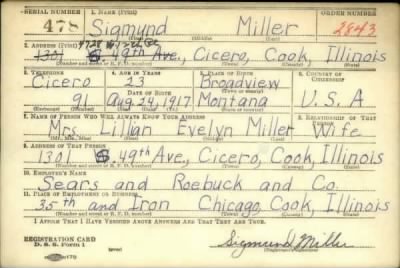 SERIAL NUMBER 1. NAME (Print) ORDER NUMBER
478 Sigmund Miller 2843
(First) (Middle) (Last)
2. ADDRESS (Print)
1301 S. 49th Ave., Cicero, Cook, Illinois
(Number and street or R. F. D. number) (Town) (County) (State)
3. TELEPHONE 4. AGE IN YEARS 5. PLACE OF BIRTH 6. COUNTRY OF CITIZENSHIP
Cicero 23 Broadview
DATE OF BIRTH
91 Aug. 24, 1917 Montana U. S. A
7. NAME OF PERSON WHO WILL ALWAYS KNOW YOUR ADDRESS 8. RELATIONSHIP OF THAT PERSON
Mrs. Lillian Evelyn Miller Wife
(Mr., Mrs., Miss) (First) (Middle) (Last)
9. ADDRESS OF THAT PERSON
1301 S. 49th Ave., Cicero, Cook, Illinois
(Number and street or R. F. D. number) (Town) (County) (State)
10. EMPLOYER'S NAME
Sears and Roebuck and Co.
11. PLACE OF EMPLOYMENT OR BUSINESS
35th and Iron Chicago, Cook, Illinois
(Number and street or R. F. D. number) (Town) (County) (State)
I AFFIRM THAT I HAVE VERIFIED ABOVE ANSWERS AND THAT THEY ARE TRUE.
REGISTRATION CARD
D. S. S. Form 1 Sigmund Miller